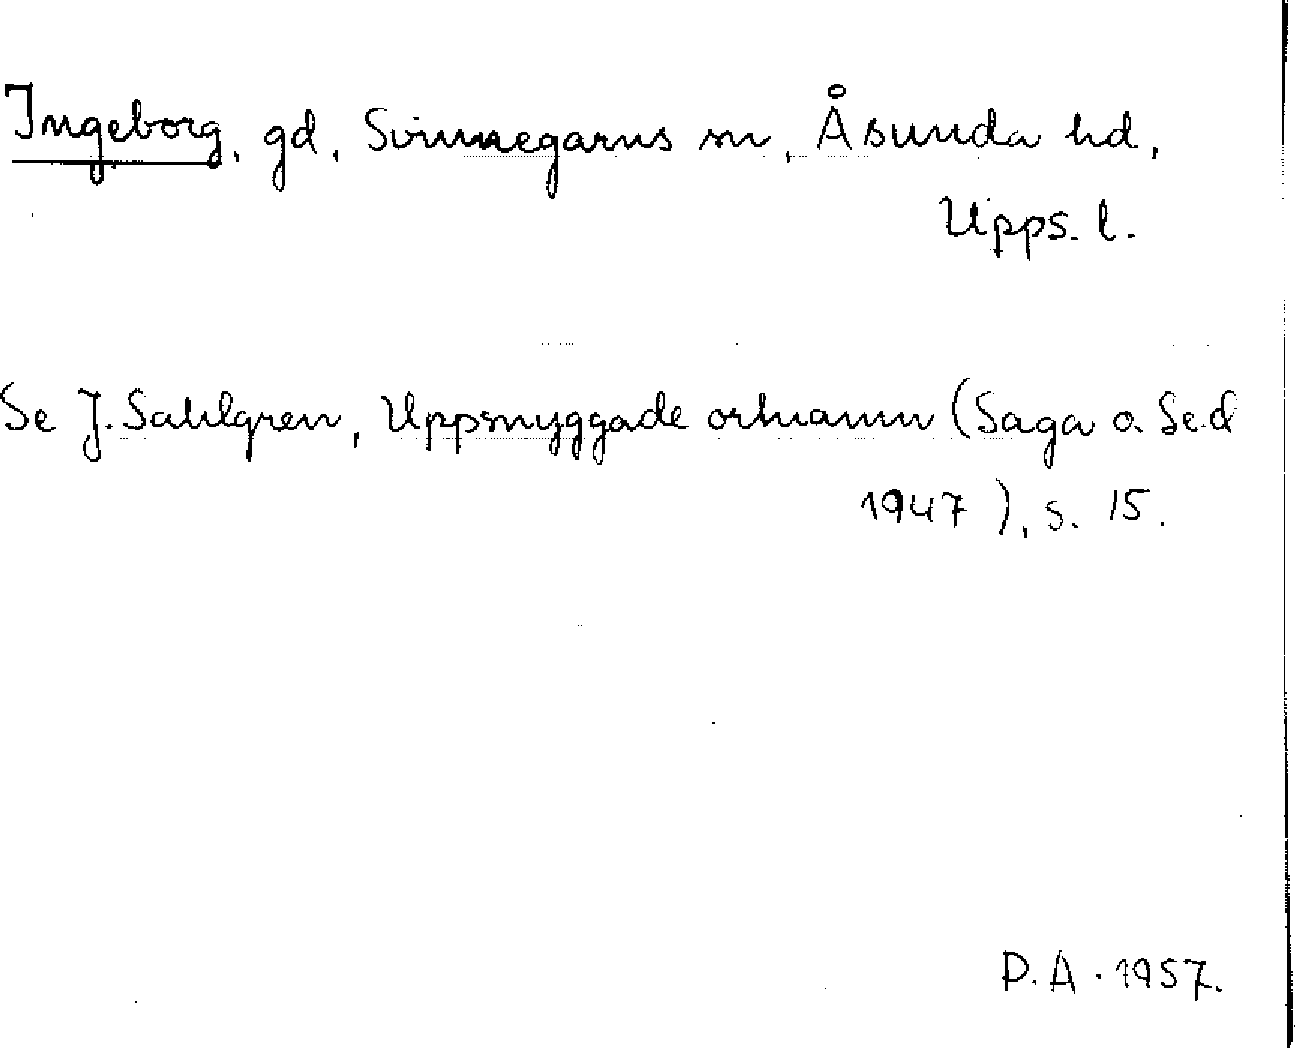 Ingeborg, gd, Svinnegarns sn, Åsunda hd,
Upps. l.
Se J. Sahlgren, Uppsnyggade ortnamn (Saga o. Sed
1947), s. 15.
D. A. 1957.